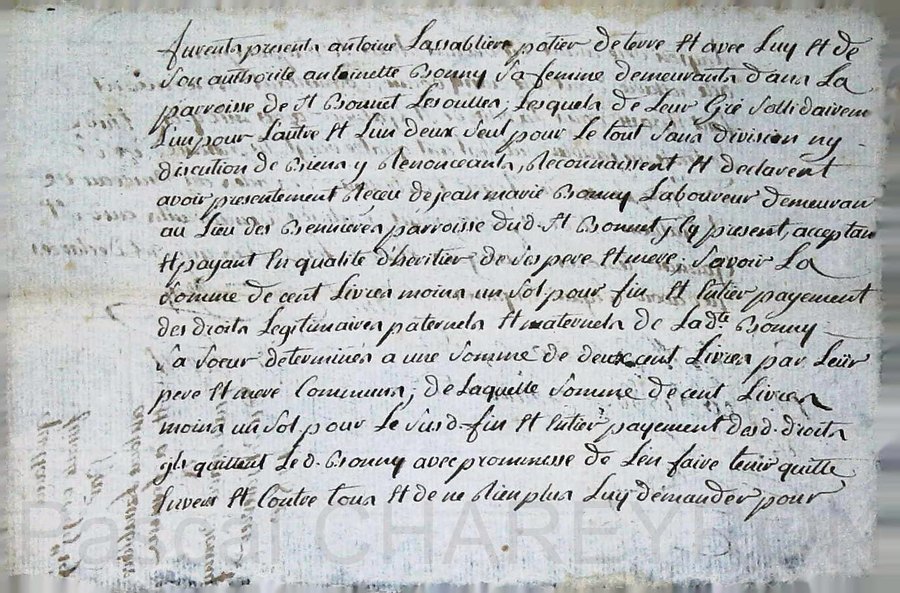 furents presents antoine Lassabliere potier de terre et avec Luy et de
Son authorité antoinette Bonny Sa femme demeurants dans La
parroisse de St Bonnet Lesoulles, Lesquels de Leur Gré Sollidairem
L'un pour Lautre et Lun deux Seul pour Le tout Sans division ny
discution de Biens y Renonceants, Reconnaissent et declarent
avoir presentement Reçeu de jean marie Bonny Laboureur demeuran
au Lieu des Bennieres parroisse dud. St Bonnet jcy present, acceptan
et payant En qualité d'heritier de Ses pere et mere, Savoir La
Somme de cent Livres moins un Sol pour fin et Entier payement
des droits Legitimaires paternels et maternels de Lad.te Bonny
Sa Soeur determinés a une Somme de deux cent Livres par Leur
pere et mere Communs; de Laquelle Somme de cent Livres
moins un Sol pour Le Susd. fin et Entier payement desd. droits
jls quittent Le d. Bonny avec prommesse de Len faire tenir quitte
Envers et Contre tous et de ne Rien plus Luy demander pour
Pascal CHAREYRON